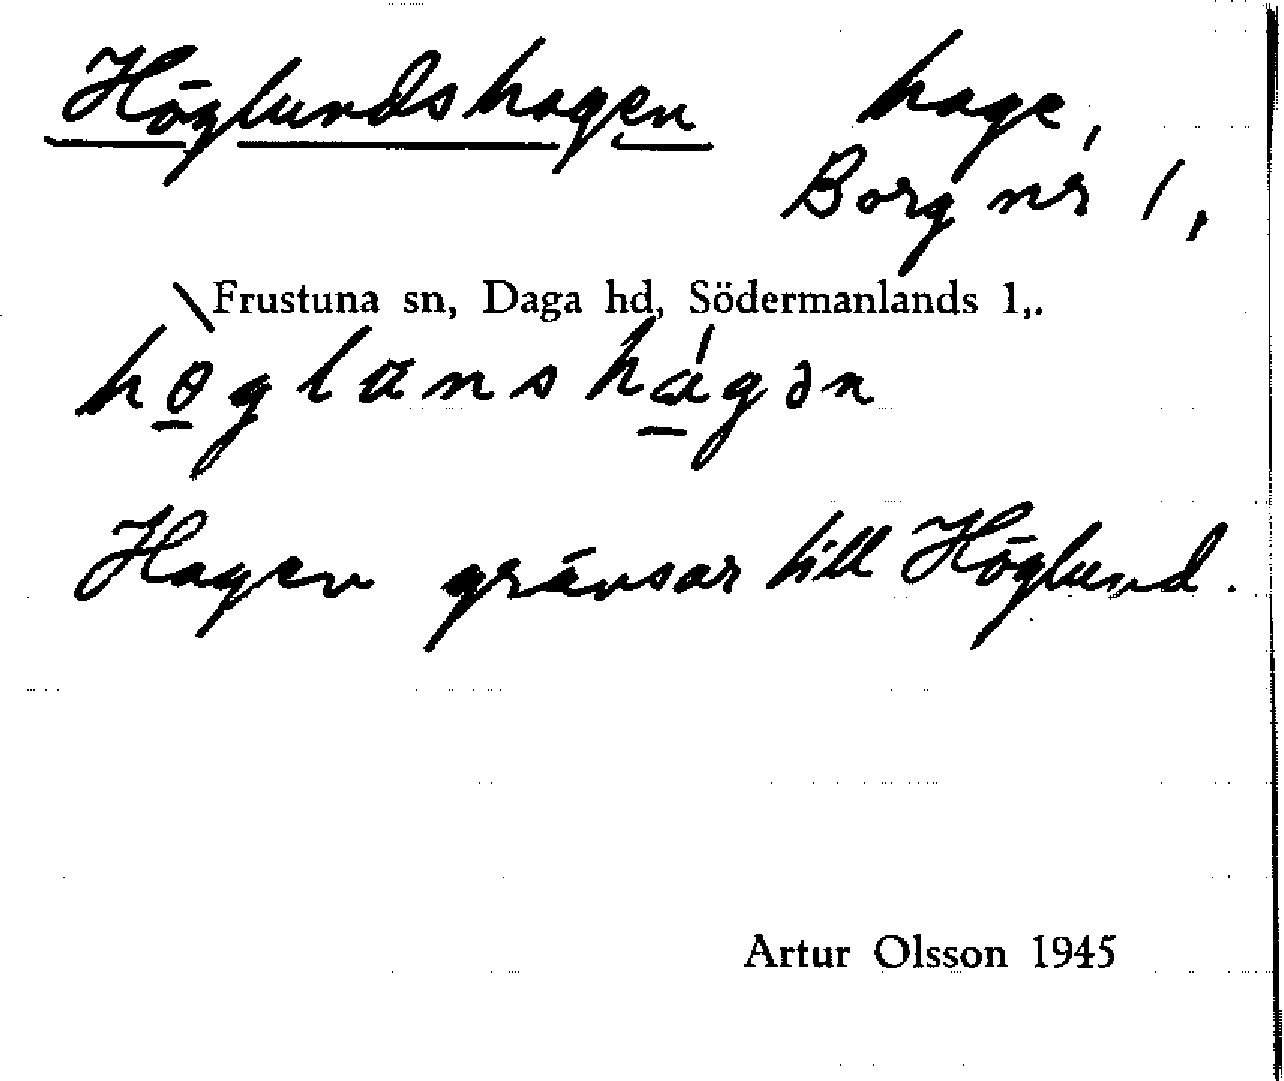 Höglundshagen hage,
Borg nr 1,
Frustuna sn, Daga hd, Södermanlands l,.
hö̀glanshágən
Hagen gränsar till Höglund.
Artur Olsson 1945